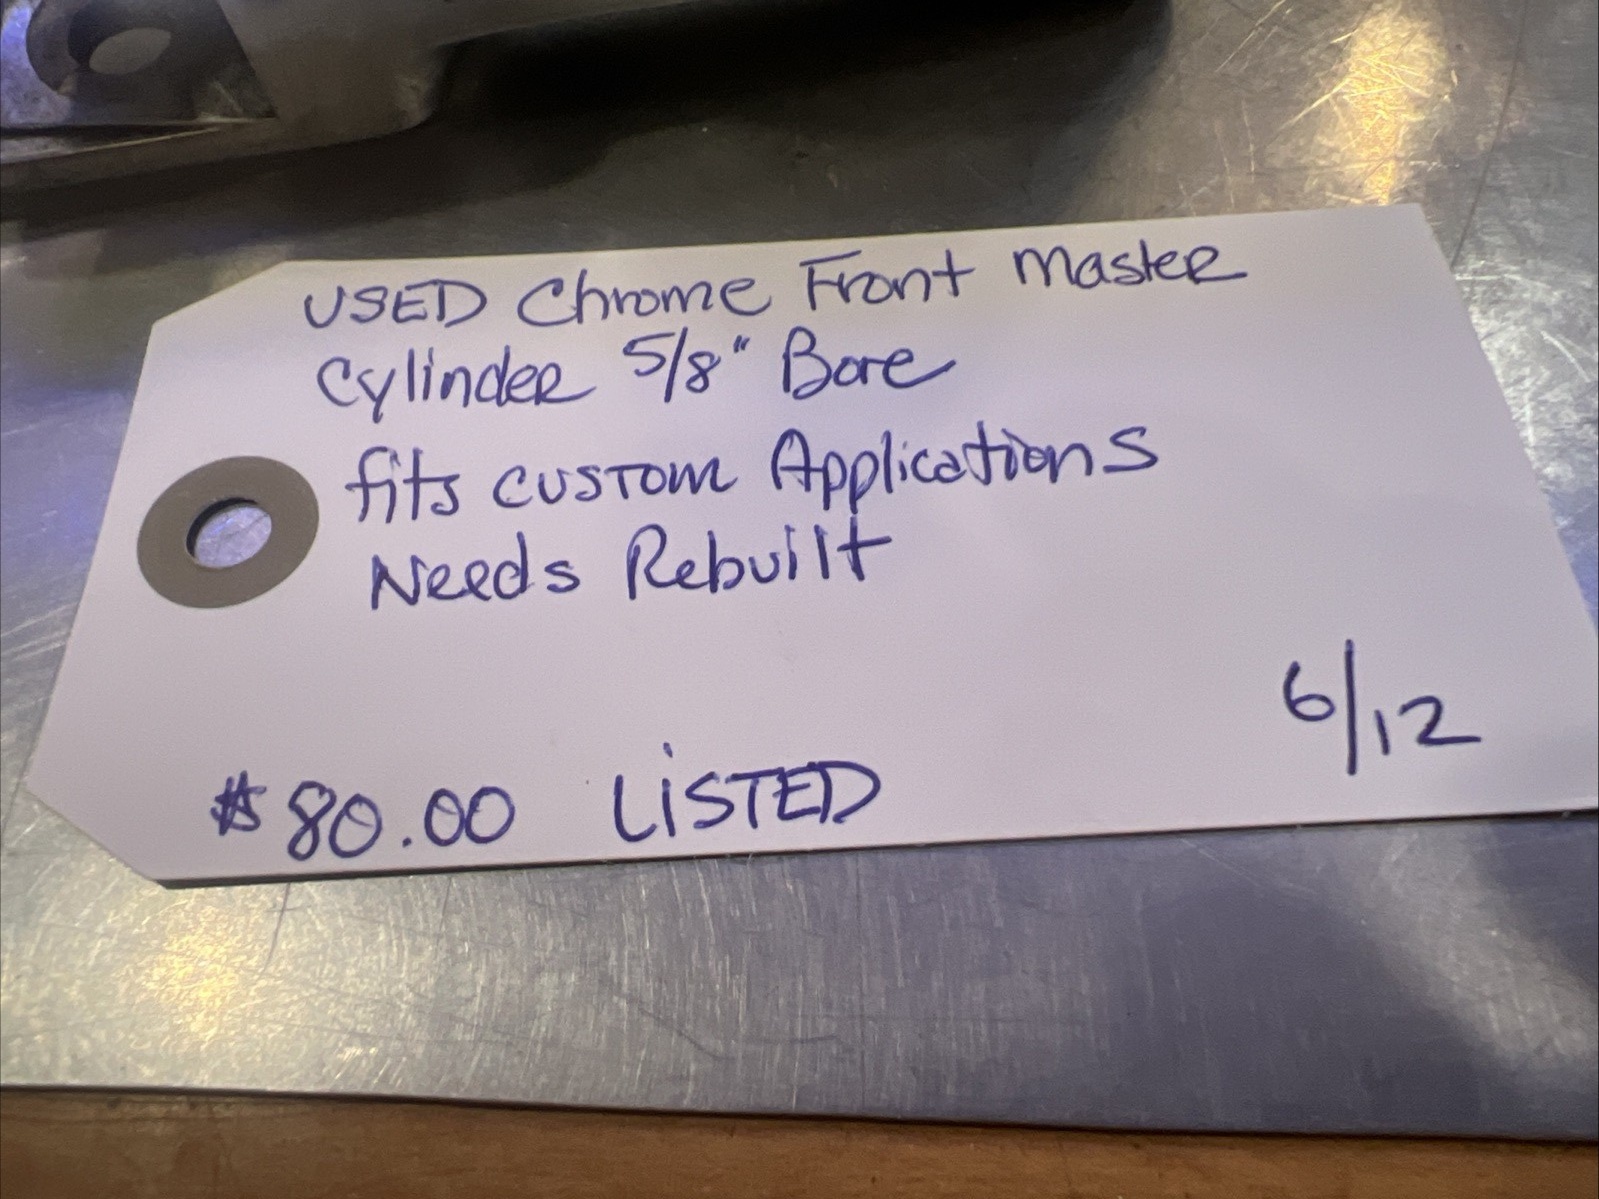 USED Chrome Front Master
Cylinder 5/8" Bore
fits custom Applications
Needs Rebuilt
6/12
$80.00 LiSTED